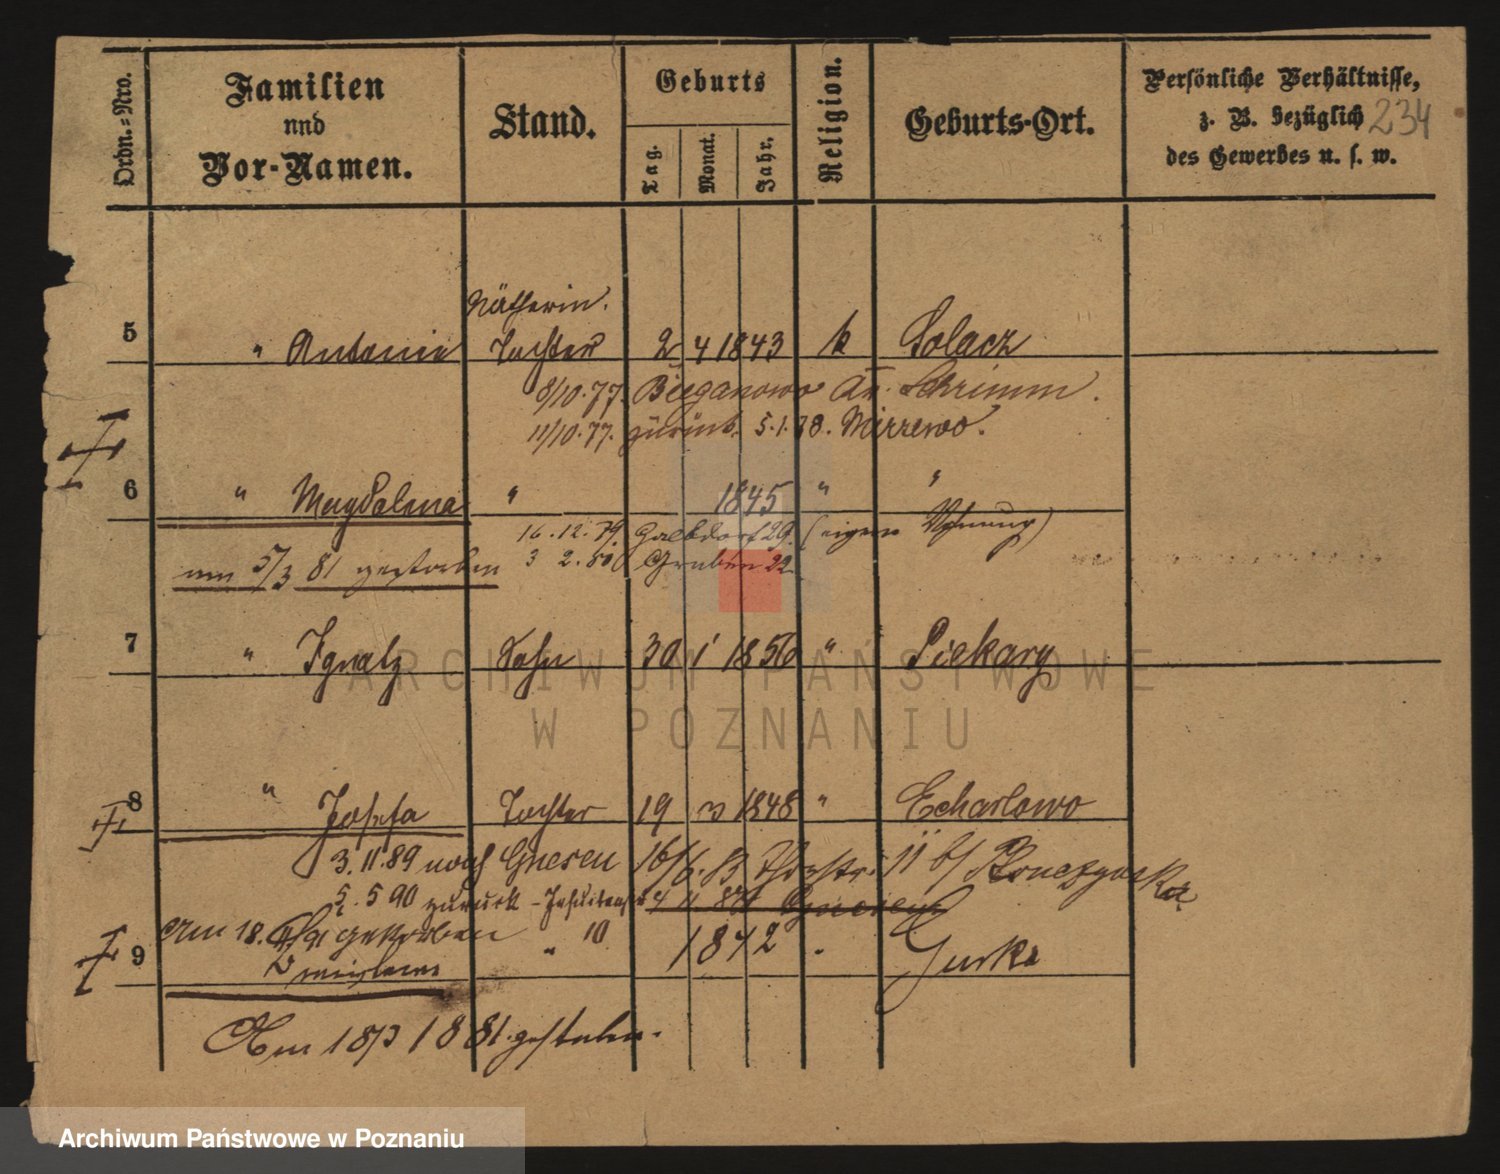 Ordn.=Nro.
Familien
nnd
Vor-Namen.
Stand.
Geburts
Tag.
Monat.
Jahr.
Religion.
Geburts-Ort.
Persönliche Verhältnisse,
z. B. bezüglich
des Gewerbes u. s. w.
234
Nätherin.
5 " Antonie Tochter 2 4 1843 k Solacz
8/10.77. Bieganowo Kr. Schrimm.
11/10.77. zurück. 5.1.78.
6 " Magdalena " 1845 " "
16.12.79. 29. (eigene Wohnung)
am 5/3 81 gestorben 3 2.80 Gruben 22
7 " Ignatz Sohn 30 1 1856 " Piekary
8 " Josefa Tochter 19 3 1848 "
3.11.89 nach Gnesen 16/6.83 11 b/
5.5 90 zurück - Gnesen
Am 18. gestorben
9 " 10 1842 . Gurka
Am 18/3 1881 gestorben.
ARCHIWUM PAŃSTWOWE
W POZNANIU
Archiwum Państwowe w Poznaniu